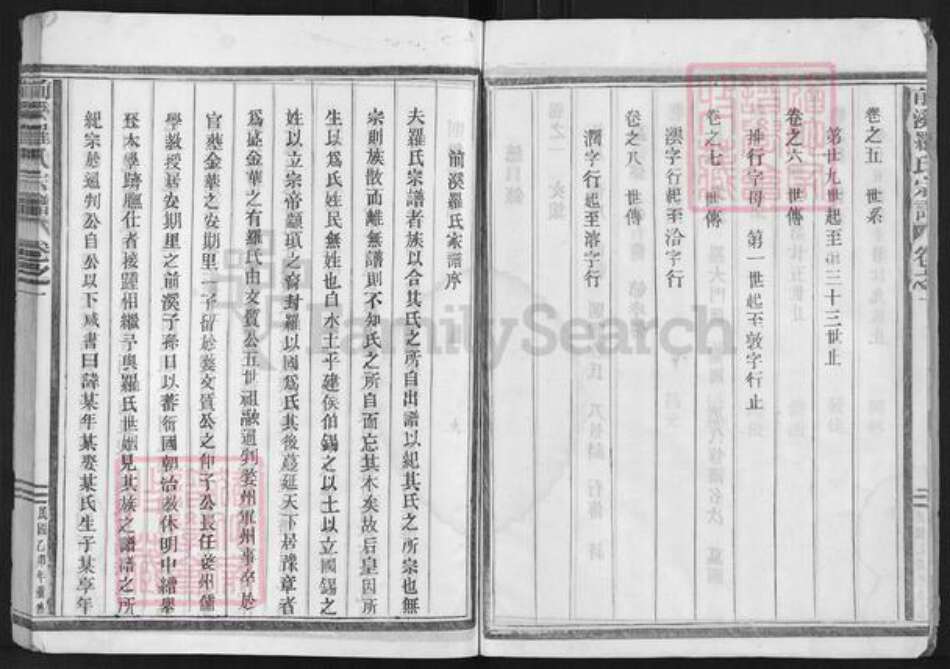 前溪羅氏宗譜 卷之一
卷之五 世系
第廿九世起至卅三十三世止
卷之六 世傳
排行字母 第一世起至敦字行止
卷之七 世傳
漢字行起至洽字行
卷之八 世傳
潤字行起至溶字行
前溪羅氏家譜序
夫羅氏宗譜者族以合其氏之所自出譜以紀其氏之所宗也無
宗則族散而離無譜則不知氏之所自而忘其本矣故后皇因所
生以爲氏姓民無姓也自水土平建侯伯錫之以土以立國錫之
姓以立宗帝顓頊之裔封羅以國爲氏其後蔓延天下居豫章者
爲盛金華之有羅氏由文質公五世祖融通判婺州軍州事卒於
官葬金華之安期里一子留於婺文質公之仲子公長任婺州儒
學教授居安期里之前溪子孫日以蕃衍國朝治教休明中繪舉
登本學躋膴仕者接踵相繼予與羅氏世姻見其族之譜譜之所
紀宗於通判公自公以下咸書曰諱某年某娶某氏生子某享年
前溪羅氏宗譜 卷之一
民國乙卯年重修
FamilySearch